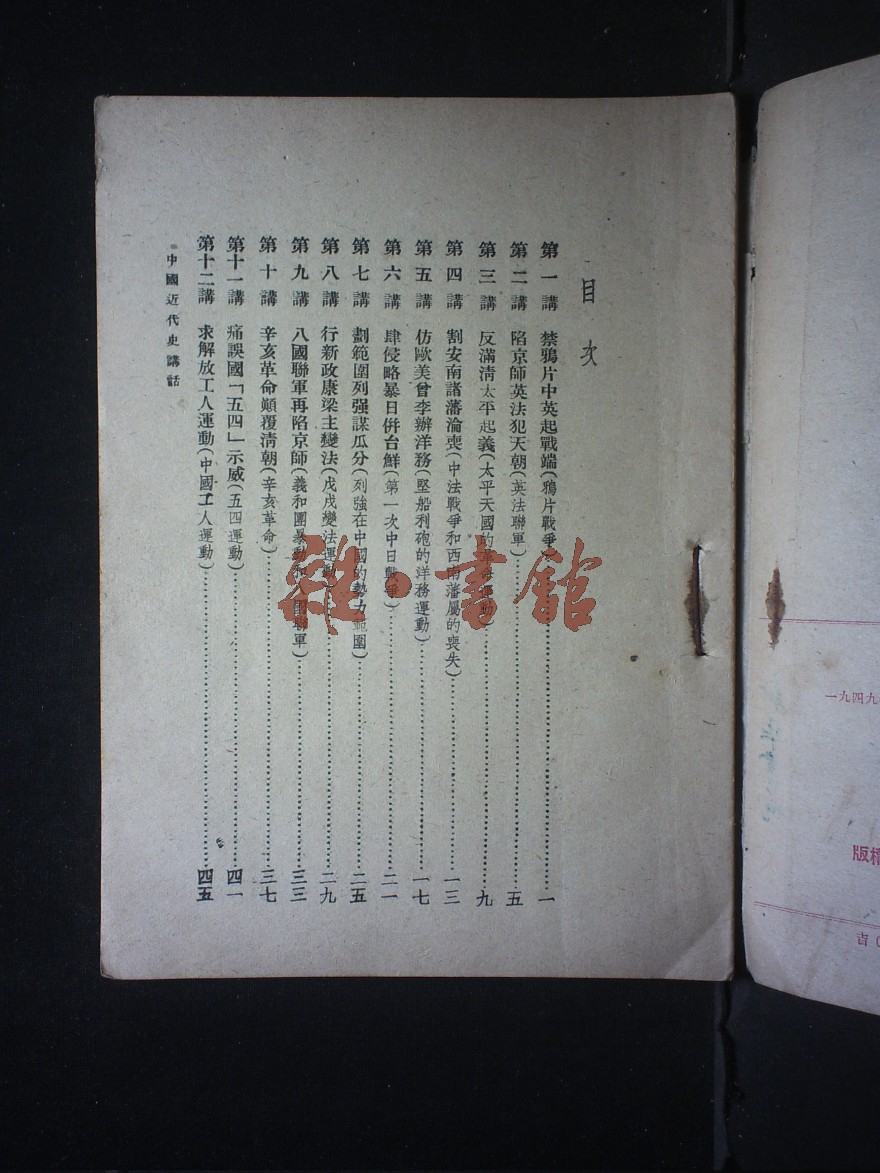 目次
第一講 禁鴉片中英起戰端(鴉片戰爭)……一
第二講 陷京師英法犯天朝(英法聯軍)……五
第三講 反滿淸太平起義(太平天國的革命運動)……九
第四講 割安南諸藩淪喪(中法戰爭和西南藩屬的喪失)……一三
第五講 仿歐美曾李辦洋務(堅船利砲的洋務運動)……一七
第六講 肆侵略暴日倂台鮮(第一次中日戰爭)……二一
第七講 劃範圍列强謀瓜分(列強在中國的勢力範圍)……二五
第八講 行新政康梁主變法(戊戌變法運動)……二九
第九講 八國聯軍再陷京師(義和團暴動和八國聯軍)……三三
第十講 辛亥革命顚覆淸朝(辛亥革命)……三七
第十一講 痛誤國「五四」示威(五四運動)……四一
第十二講 求解放工人運動(中國工人運動)……四五
中國近代史講話
雜·書館
一九四九
版權
吉